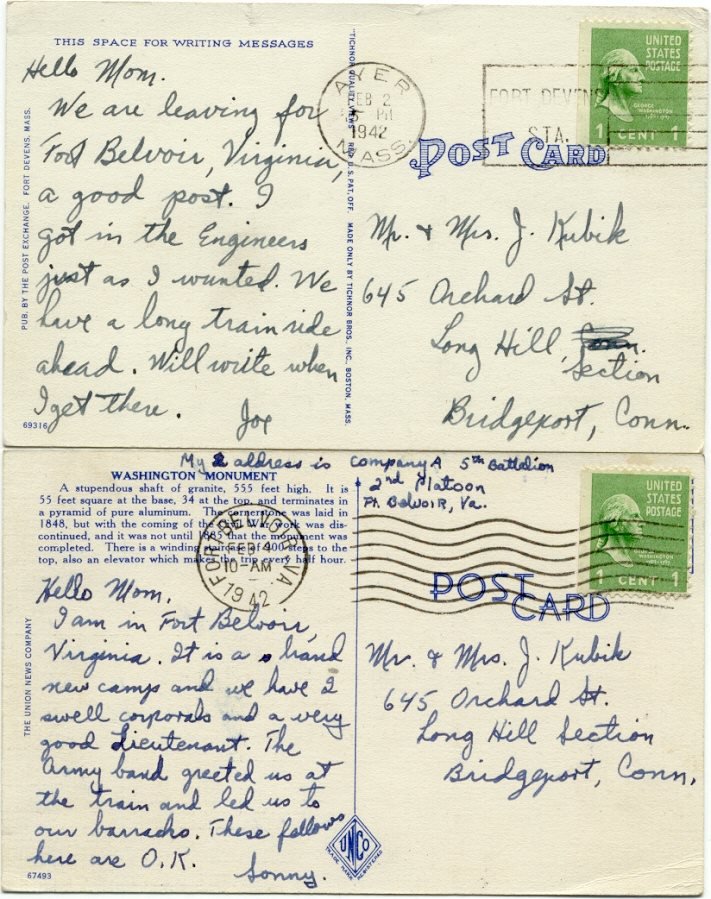 THIS SPACE FOR WRITING MESSAGES
Hello Mom.
We are leaving for
Fort Belvoir, Virginia,
a good post. I
got in the Engineers
just as I wanted. We
have a long train ride
ahead. Will write when
I get there. Joe
69316
PUB. BY THE POST EXCHANGE, FORT DEVENS, MASS.
"TICHNOR QUALITY VIEWS" REG. U.S. PAT. OFF. MADE ONLY BY TICHNOR BROS., INC., BOSTON, MASS.
AYER
FEB 2
PM
1942
MASS.
FORT DEVENS
STA.
UNITED
STATES
POSTAGE
GEORGE
WASHINGTON
1 CENT 1
POST CARD
Mr. & Mrs. J. Kubik
645 Orchard St.
Long Hill
Section
Bridgeport, Conn.
My address is Company A 5th Battalion
2nd Platoon
Ft. Belvoir, Va.
WASHINGTON MONUMENT
A stupendous shaft of granite, 555 feet high. It is
55 feet square at the base, 34 at the top, and terminates in
a pyramid of pure aluminum. The cornerstone was laid in
1848, but with the coming of the Civil War work was dis-
continued, and it was not until 1885 that the monument was
completed. There is a winding staircase of 900 steps to the
top, also an elevator which makes the trip every half hour.
FORT BELVOIR, VA.
FEB 4
10-AM
1942
UNITED
STATES
POSTAGE
GEORGE
WASHINGTON
1 CENT 1
POST
CARD
Hello Mom.
I am in Fort Belvoir,
Virginia. It is a brand
new camp and we have 2
swell corporals and a very
good Lieutenant. The
Army band greeted us at
the train and led us to
our barracks. These fellows
here are O.K. Sonny.
67493
THE UNION NEWS COMPANY
UNCO
TRADE MARK REGISTERED
Mr. & Mrs. J. Kubik
645 Orchard St.
Long Hill Section
Bridgeport, Conn.